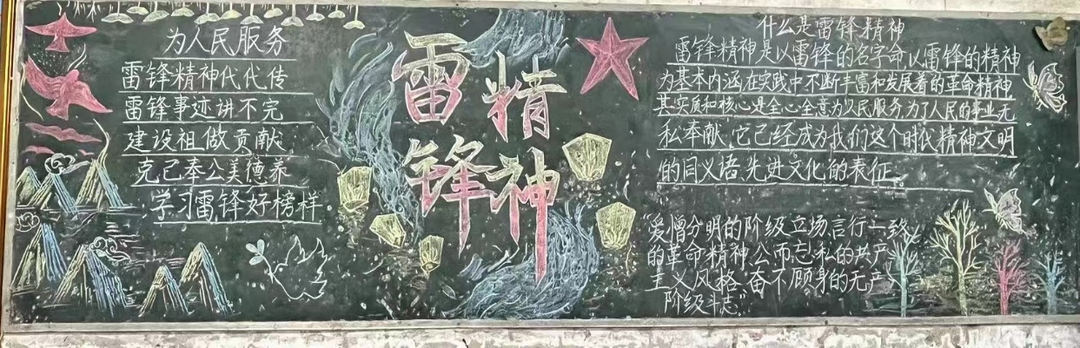 为人民服务
雷锋精神代代传
雷锋事迹讲不完
建设祖做贡献
克己奉公美德养
学习雷锋好榜样。
雷锋
精神
什么是雷锋精神
雷锋精神是以雷锋的名字命以雷锋的精神
为基本内涵在实践中不断丰富和发展着的革命精神
其实质和核心是全心全意为人民服务,为了人民的事业无
私奉献,它已经成为我们这个时代精神文明
的同义语、先进文化的表征。
"爱憎分明的阶级立场,言行一致
的革命精神,公而忘私的共产
主义风格,奋不顾身的无产
阶级斗志"